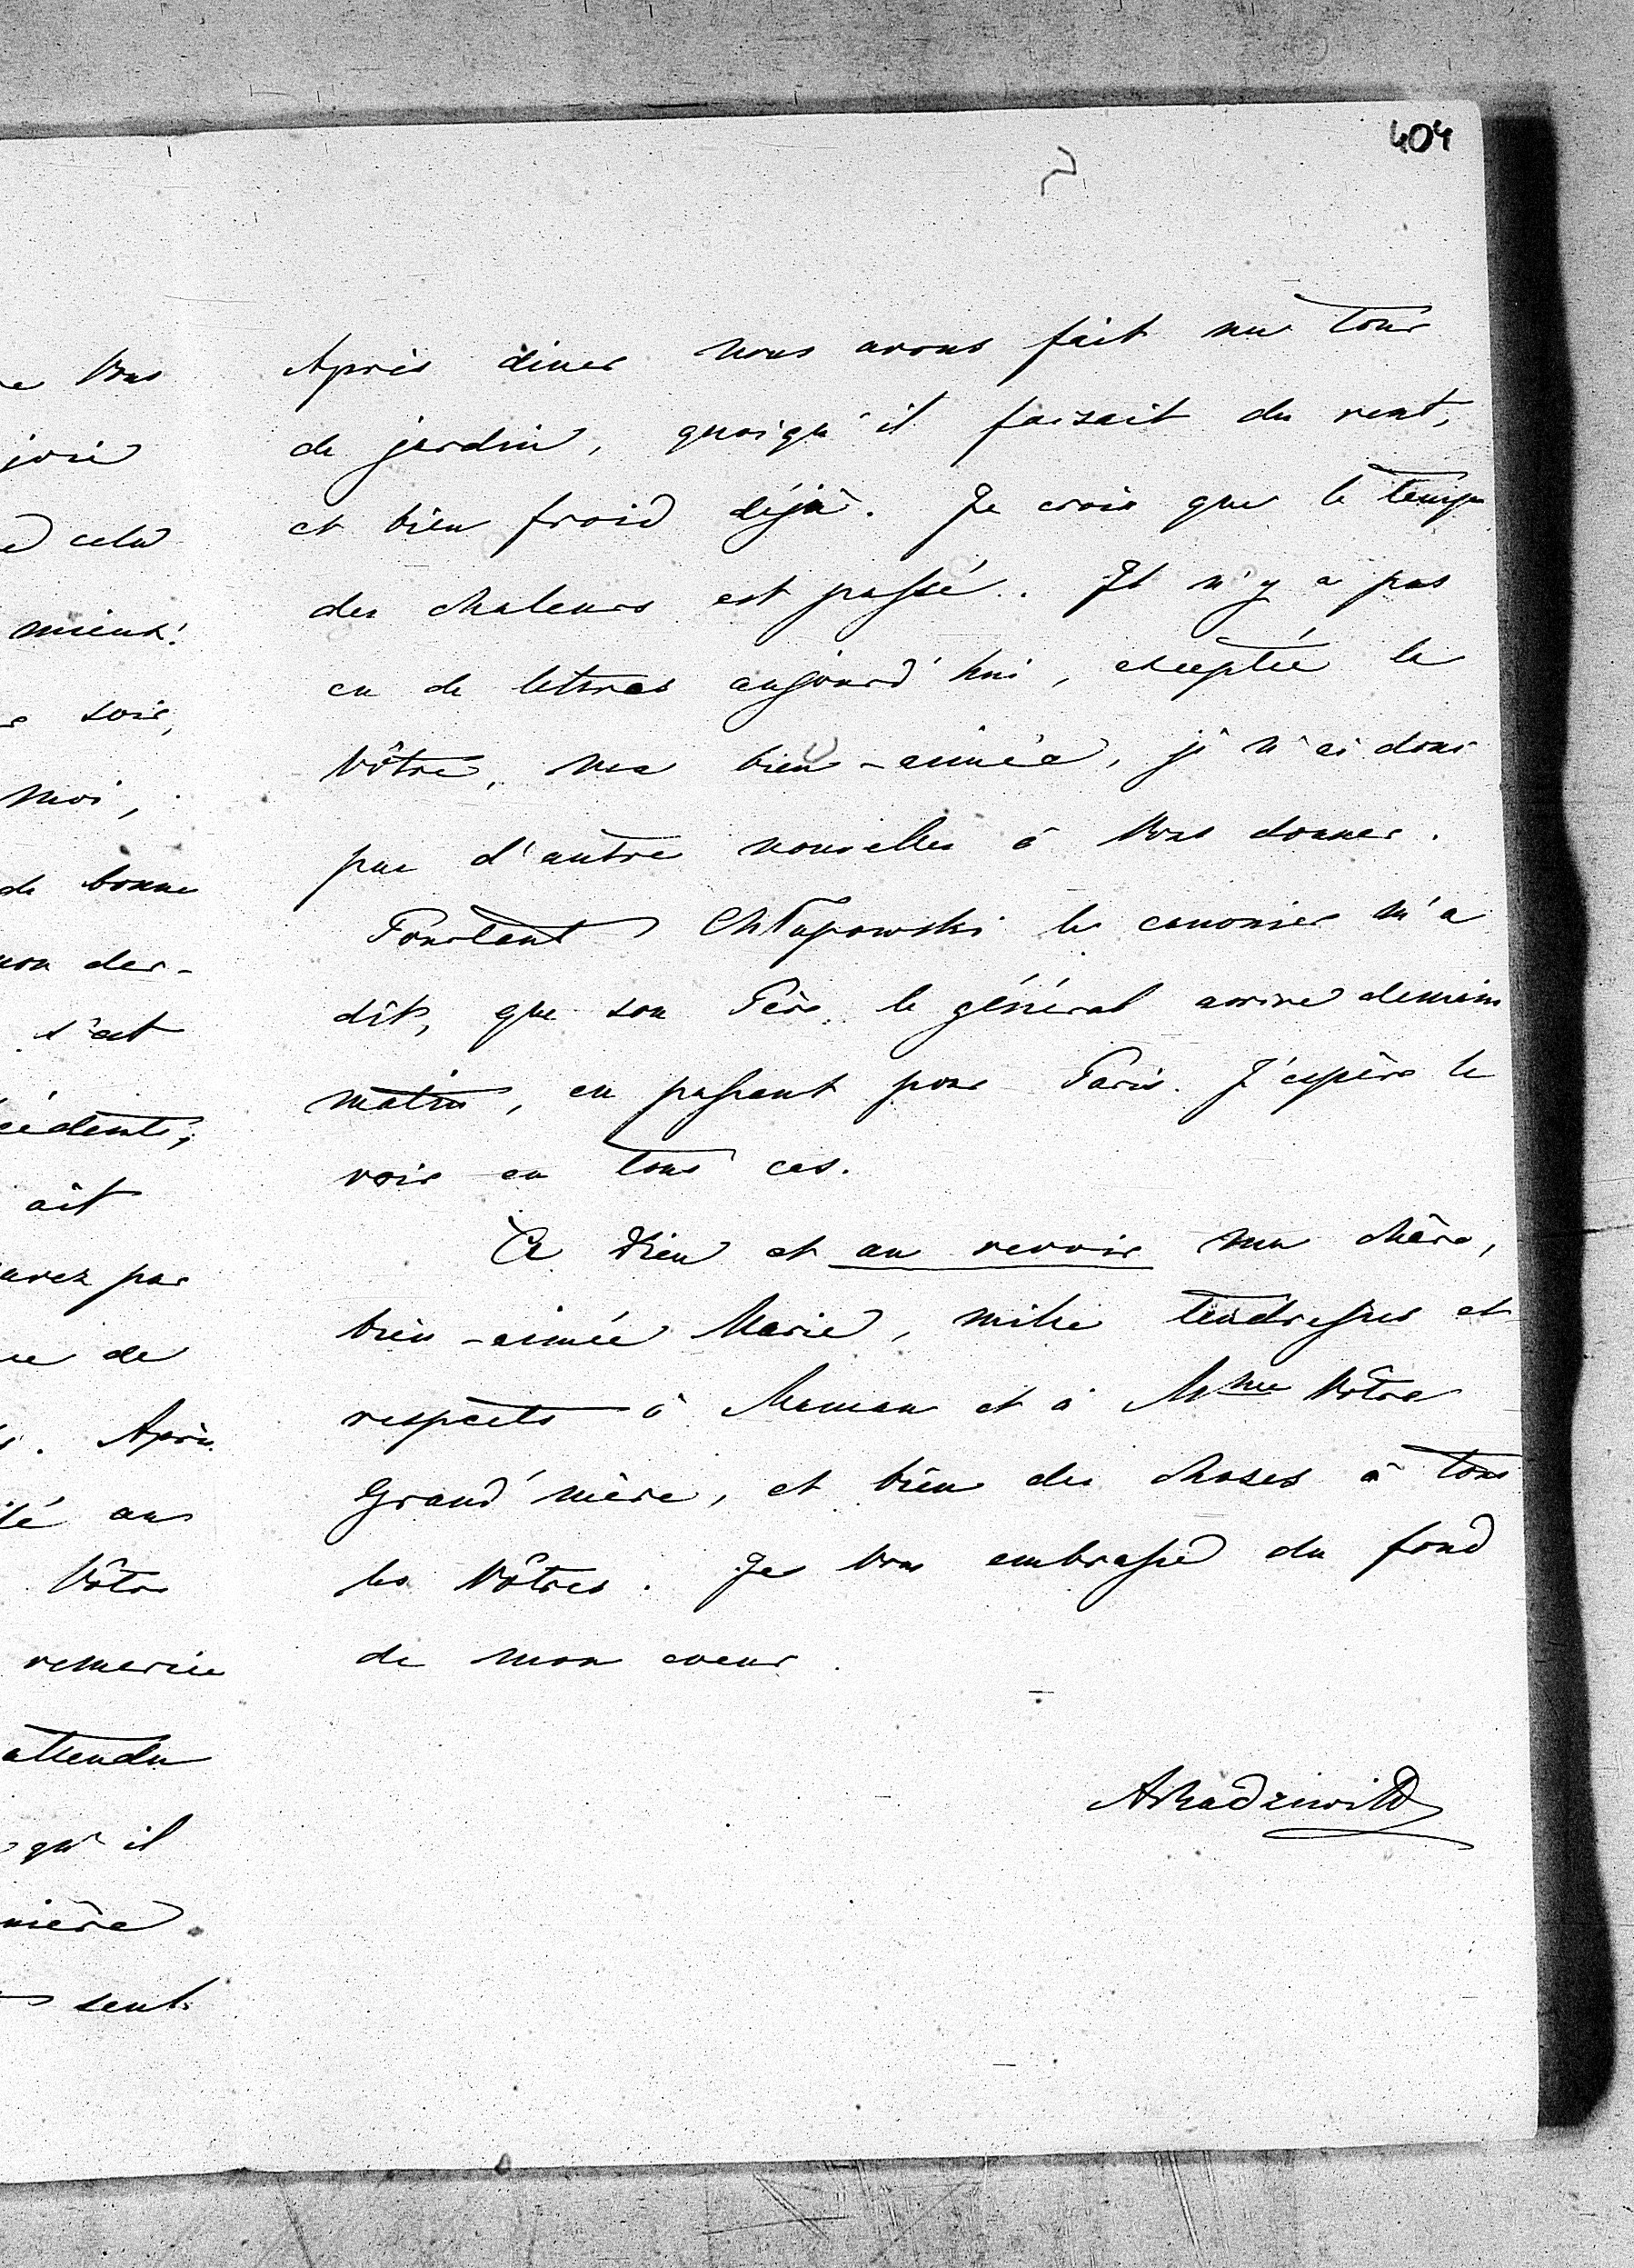 404
Après diner nous avons fait un tour
de jardin, quoiqu'il faisait du vent,
et bien froid déjà. Je crois que le temps
des chaleurs est passé. Il n'y a pas
eu de lettres aujourd'hui, exceptée la
Vôtre, ma bien-aimée, je n'ai donc
pas d'autre nouvelles à Vous donner.
Pourtant Chłapowski le canonier m'a
dit, que son Père, le général arrive demain
matin, en passant pour Paris. J'espère le
voir en tous cas.
A Dieu et au revoir ma chère,
bien-aimée Marie, mille tendresses et
respects à Maman et à Mme Votre
Grand'mère, et bien des choses à tous
les Vôtres. Je Vous embrasse du fond
de mon coeur.
ARadziwiłł
Vous
joie
cela
mieux!
soir,
moi,
de bonne
mon der-
s'est
ait
avez pas
de
Après
au
Vôtre
remercie
attendu
qu'il
seul